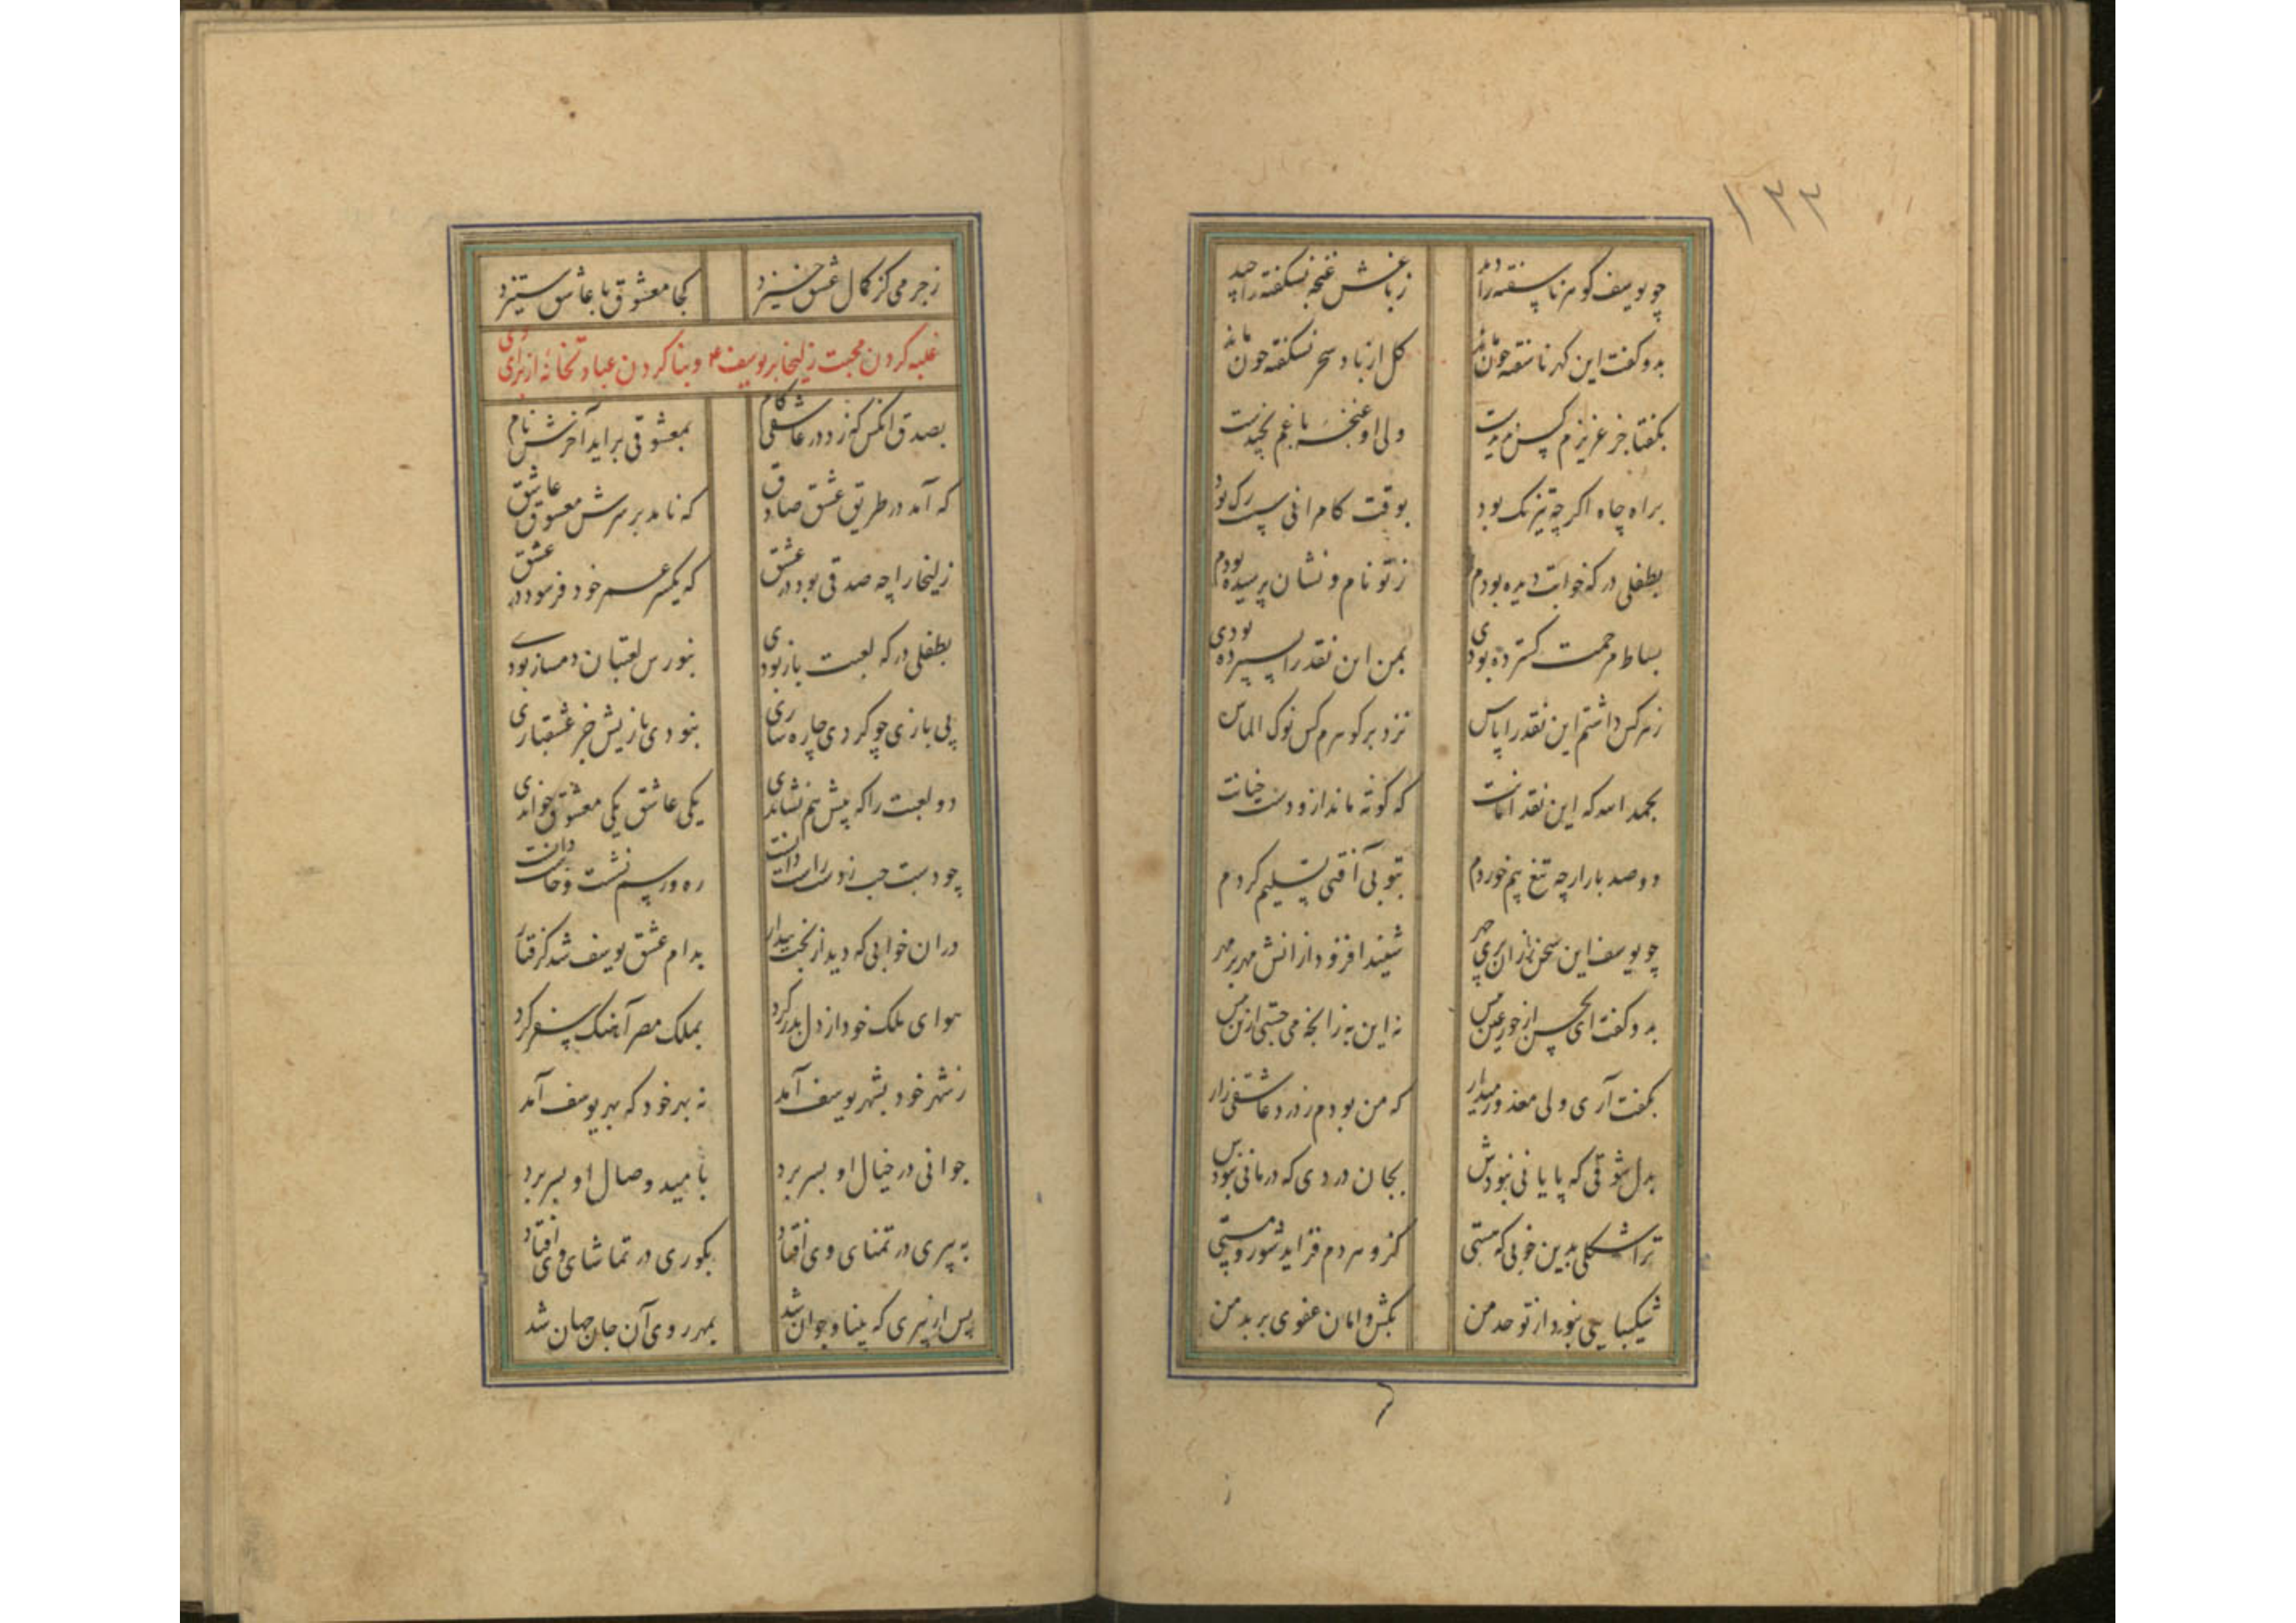 ۱۳۳
چو یوسف گوهر ناسفته را دید ز باغش غنچه نشکفته را چید
بدو گفت این گهر ناسفته چون ماند گل از باد سحر نشکفته چون ماند
بگفتا جز عزیزم کس ندیدست ولی او غنچه باغم نچیدست
براه جاه اگر چه تیز تک بود بوقت کامرانی سست رگ بود
بطفلی در که خوابت دیده بودم ز تو نام و نشان پرسیده بودم
بساط مرحمت گسترده بودی بمن این نقد را بسپرده بودی
ز هر کس داشتم این نقد را پاس نزد بر گوهرم کس نوک الماس
بحمد الله که این نقد امانت که کوته ماند ازو دست خیانت
دو صد بار ار چه تیغ بیم خوردم بتو بی آفتی تسلیم کردم
چو یوسف این سخن زان پری چهر شنید افزود از آنش مهر بر مهر
بدو گفت ای بحسن از حور عین بس نه این به زانچه می جستی ازین پس
بگفت آری ولی معذور میدار که من بودم ز درد عاشقی زار
بدل شوقی که پایانی نبودش بجان دردی که درمانی نبودش
ترا شکلی بدین خوبی که هستی کزو هر دم فزاید شور و مستی
شکیبایی نبود از تو حد من بکش دامان عفوی بر بد من
ز جرمی کز کمال عشق خیزد کجا معشوق با عاشق ستیزد
غلبه کردن محبت زلیخا بر یوسف ع و بنا کردن عبادتخانه از برای وی
بصدق آنکس که زد در عاشقی گام بمعشوقی برآید آخرش نام
که آمد در طریق عشق صادق که نامد بر سرش معشوق عاشق
زلیخا را چه صدقی بود در عشق که یکسر عمر خود فرسود در عشق
بطفلی در که لعبت باز بودی بنورس لعبتان دمساز بودی
پی بازی چو کردی چاره سازی نبودی بازیش جز عشقبازی
دو لعبت را که پیش هم نشاندی یکی عاشق یکی معشوق خواندی
چو دست چپ ز دست راست دانست ره و رسم نشست و خاست دانست
در آن خوابی که دید از بخت بیدار بدام عشق یوسف شد گرفتار
هوای ملک خود از دل بدر کرد بملک مصر آهنگ سفر کرد
ز شهر خود بشهر یوسف آمد نه بهر خود که بهر یوسف آمد
جوانی در خیال او بسر برد بامید وصال او بسر برد
به پیری در تمنای وی افتاد بکوری در تماشای وی افتاد
پس از پیری که بینا و جوان شد بمهر روی آن جان جهان شد